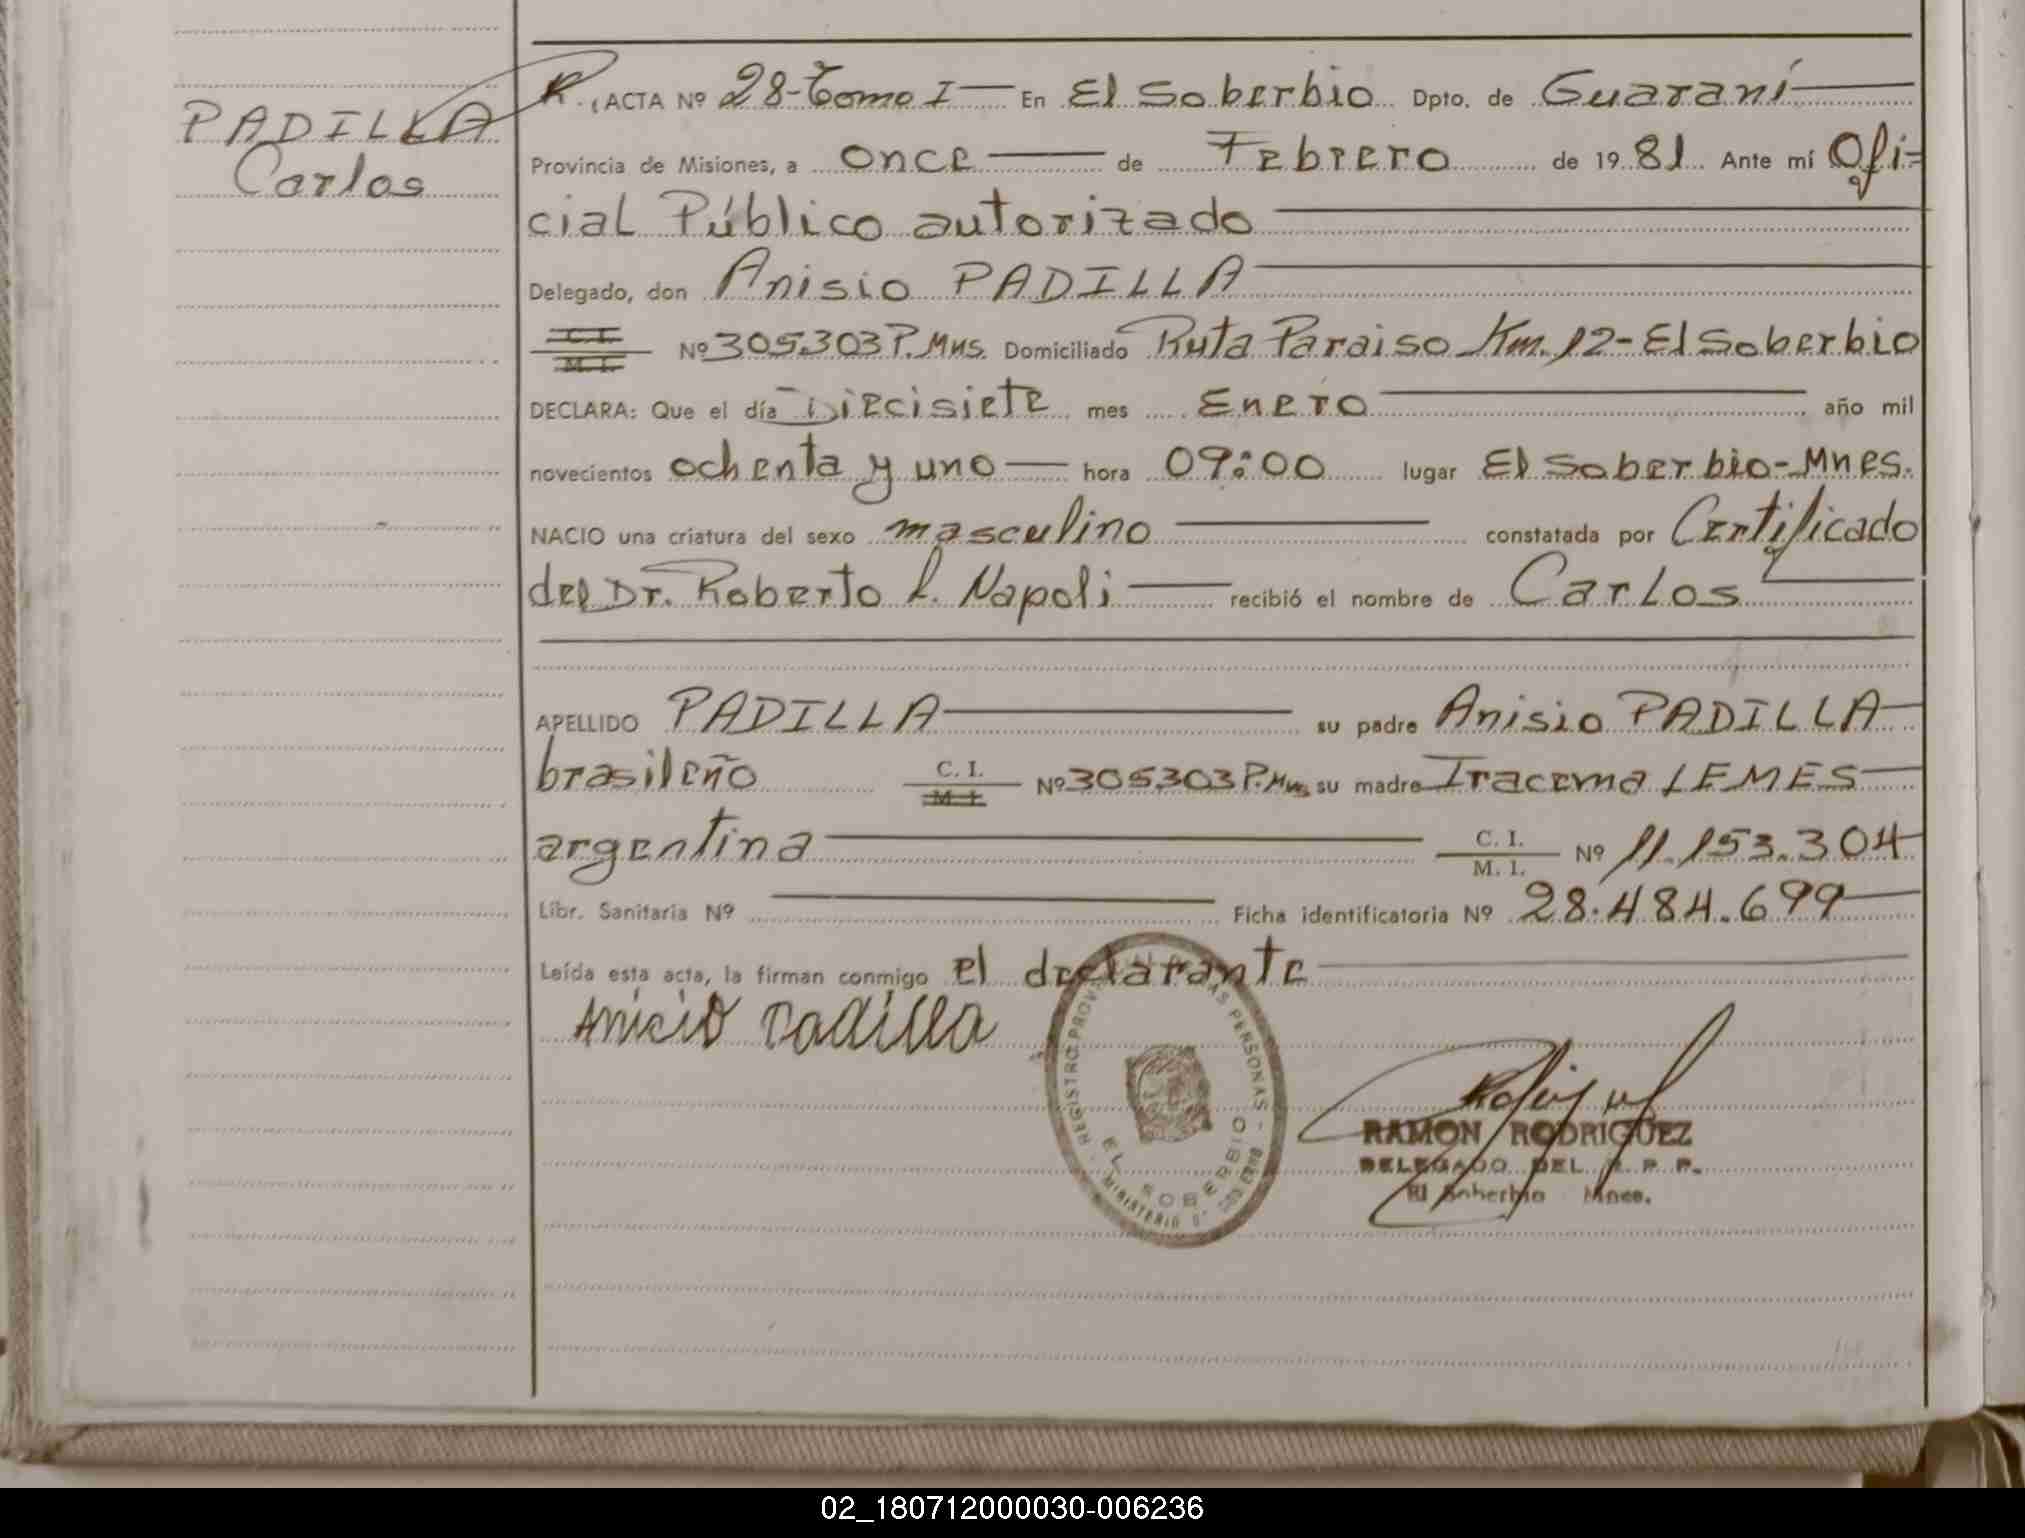 PADILLA
Carlos
R. ACTA Nº 28-Tomo I En El Soberbio Dpto. de Guaraní
Provincia de Misiones, a once de Febrero de 1981 Ante mí Ofi-
cial Público autorizado
Delegado, don Anisio PADILLA
C. I.
M. I.
Nº 305.303 P. Mns. Domiciliado Ruta Paraiso Km. 12-El Soberbio
DECLARA: Que el día Diecisiete mes Enero año mil
novecientos ochenta y uno hora 09:00 lugar El Soberbio-Mnes.
NACIO una criatura del sexo masculino constatada por Certificado
del Dr. Roberto L. Napoli recibió el nombre de Carlos
APELLIDO PADILLA su padre Anisio PADILLA
brasileño C. I. Nº 305.303 P. Mns su madre Iracema LEMES
M. I.
argentina C. I. Nº 11.153.304
M. I.
Libr. Sanitaria Nº Ficha identificatoria Nº 28.484.699
Leída esta acta, la firman conmigo el declarante
Anicio Padilla
REGISTRO PROV. DE LAS PERSONAS
EL SOBERBIO
MINISTERIO DE GOBIERNO
RAMON RODRIGUEZ
DELEGADO DEL R. P. P.
El Soberbio Mnes.
02_180712000030-006236